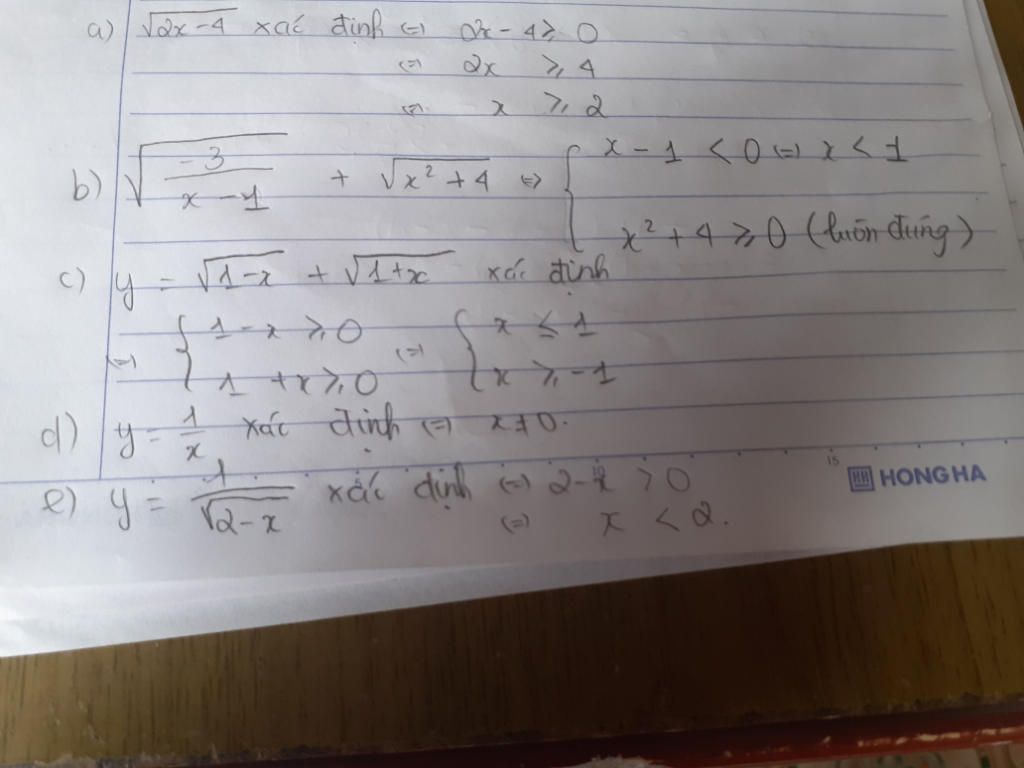 a) √(2x-4) xác định ⇔ 2x - 4 ⩾ 0
⇔ 2x ⩾ 4
⇔ x ⩾ 2
b) √(-3/(x-1)) + √(x² + 4) ⇔ { x - 1 < 0 ⇔ x < 1
x² + 4 ⩾ 0 (luôn đúng)
c) y = √(1-x) + √(1+x) xác định
⇔ { 1 - x ⩾ 0 ⇔ { x ≤ 1
1 + x ⩾ 0 x ⩾ -1
d) y = 1/x xác định ⇔ x ≠ 0.
e) y = 1/√(2-x) xác định ⇔ 2-x > 0
⇔ x < 2.
5 10 15
HH HONG HA